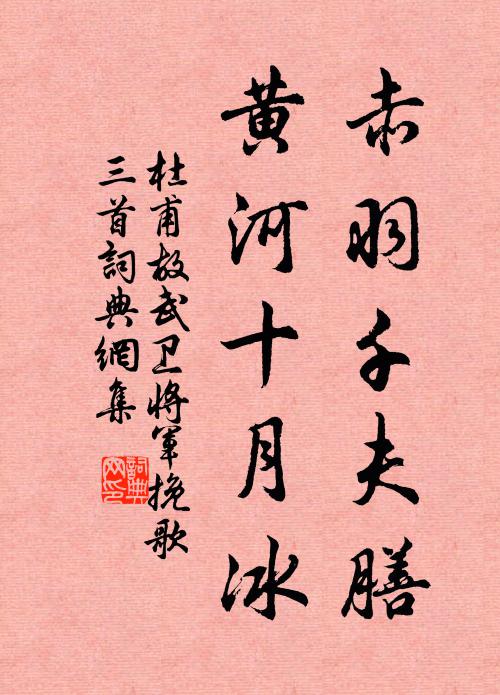 赤羽千夫膳
黄河十月冰
杜甫故武卫將軍挽歌
三首詞典網集
詞典网印